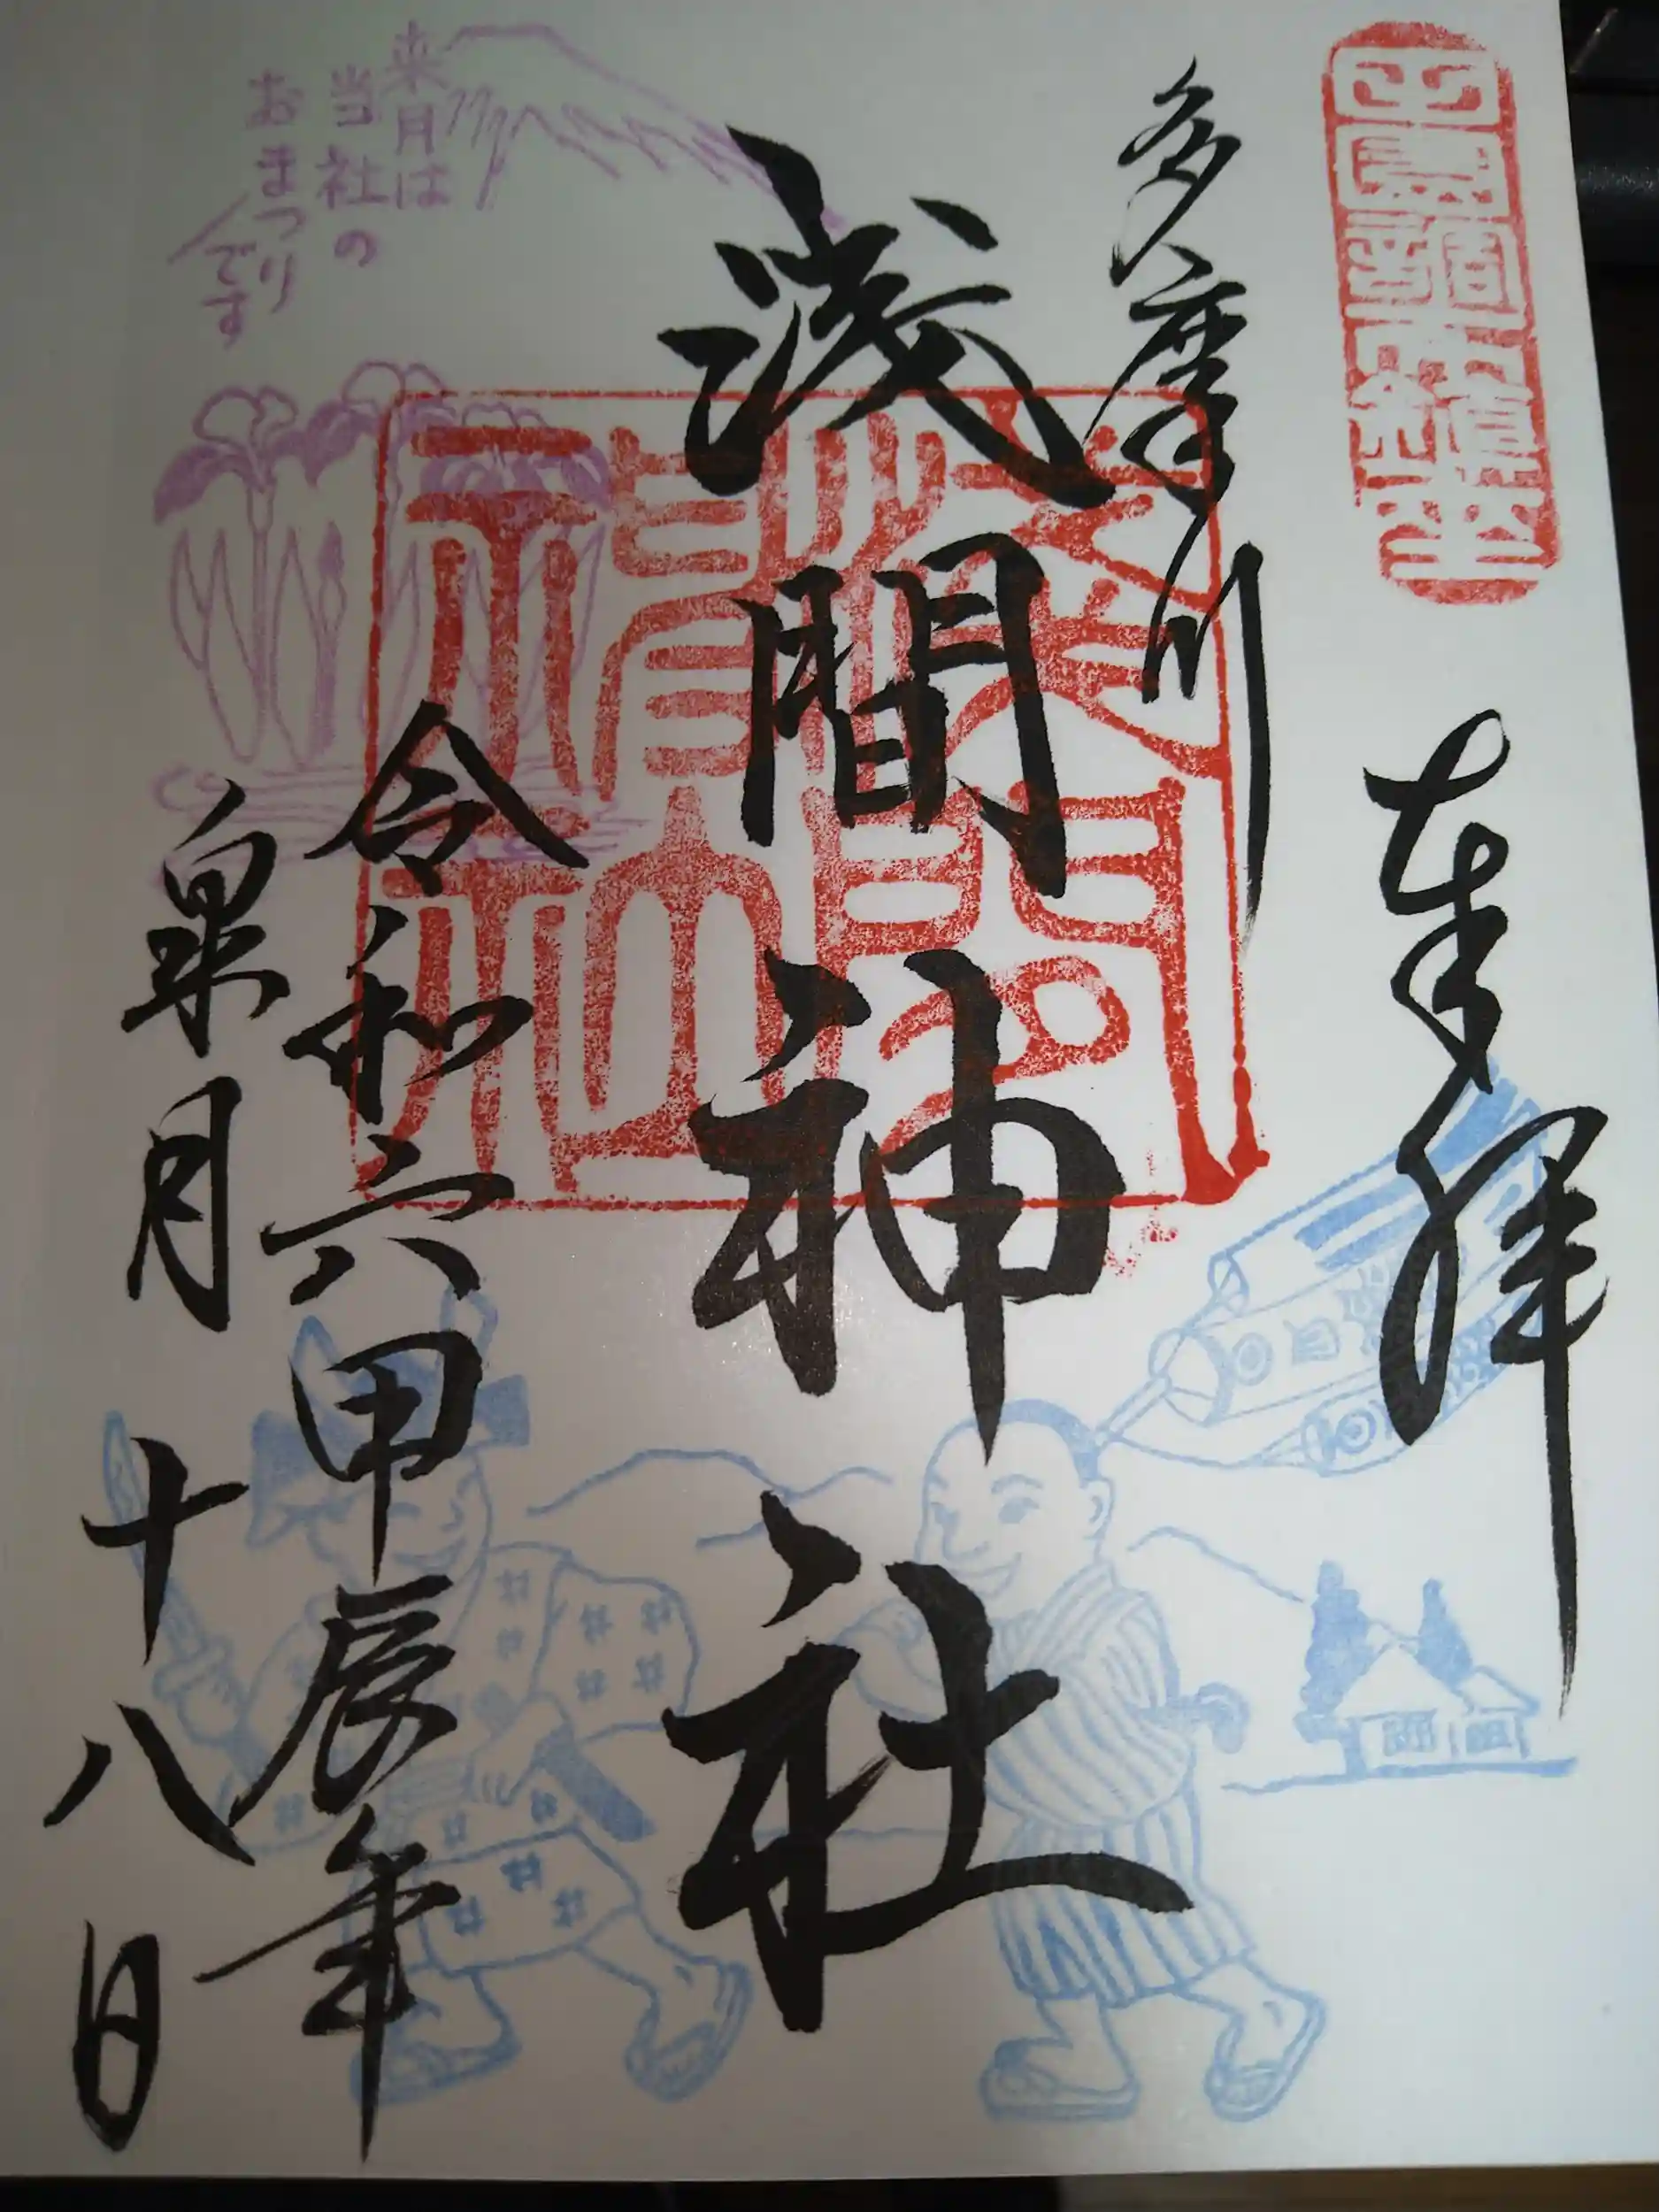 奉拝
多摩川
浅間神社
令和六甲辰年
皐月 十八日
来月は
当社の
おまつり
です